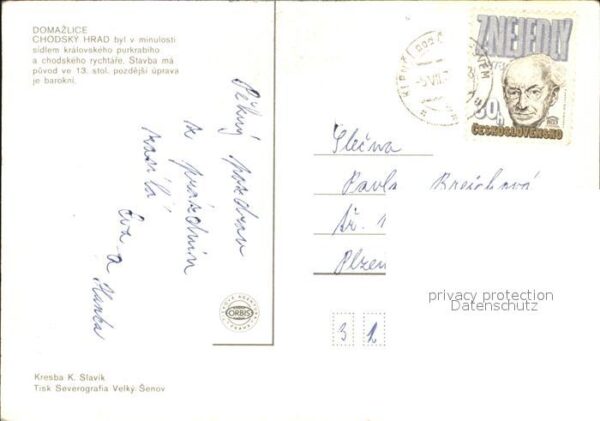 DOMAŽLICE
CHODSKÝ HRAD byl v minulosti
sídlem královského purkrabího
a chodského rychtáře. Stavba má
původ ve 13. stol. pozdější úprava
je barokní.
Pěkný pozdrav
z prázdnin
zasílá
Eva a Hanka
ORBIS
Kresba K. Slavík
Tisk Severografia Velký Šenov
ZNEJEDLÝ
60h
ČESKOSLOVENSKO
Slečna
Pavla Breichová
Plzeň
3 1
privacy protection
Datenschutz